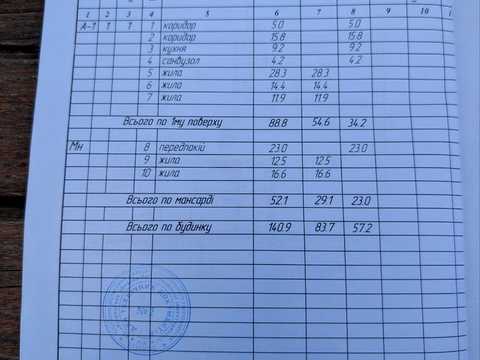 1 2 3 4 5 6 7 8 9 10
А-1 1 1 1 коридор 5.0 5.0
2 коридор 15.8 15.8
3 кухня 9.2 9.2
4 санвузол 4.2 4.2
5 жила 28.3 28.3
6 жила 14.4 14.4
7 жила 11.9 11.9
Всього по 1му поверху 88.8 54.6 34.2
Мн 8 передпокій 23.0 23.0
9 жила 12.5 12.5
10 жила 16.6 16.6
Всього по мансарді 52.1 29.1 23.0
Всього по будинку 140.9 83.7 57.2